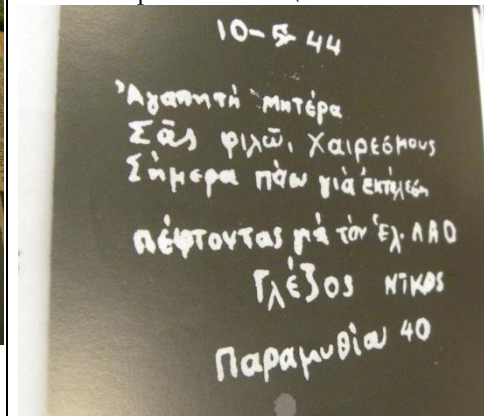 10-5-44
Ἀγαπητή μητέρα
Σᾶς φιλῶ, χαιρεσμους
Σήμερα πάω γιά ἐκτέλεση
πέφτοντας γιά τόν Ἑλ. ΛΑΟ
Γλέζος Νῖκος
Παραμυθία 40